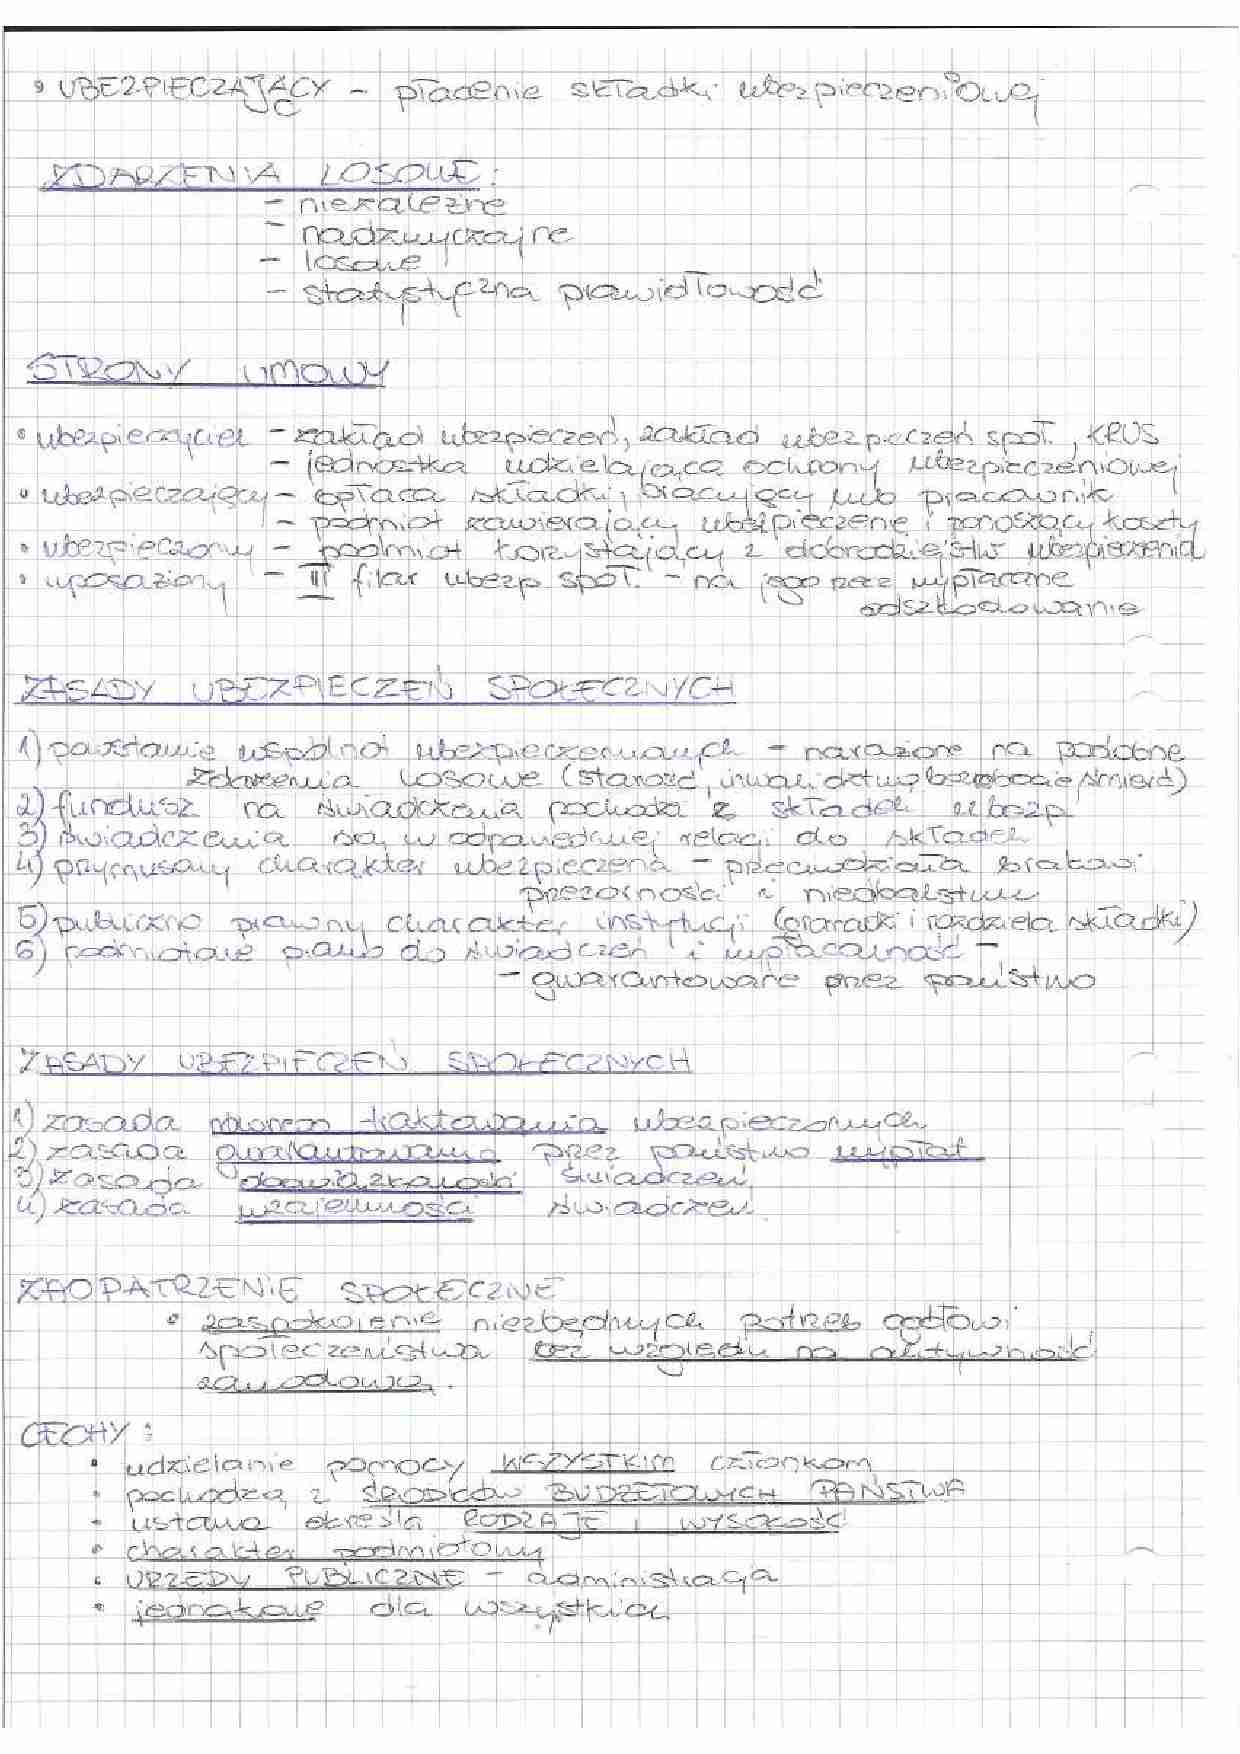 • UBEZPIECZAJĄCY - płacenie składki ubezpieczeniowej
ZDARZENIA LOSOWE:
- niezależne
- nadzwyczajne
- losowe
- statystyczna prawidłowość
STRONY UMOWY
• ubezpieczyciel - zakład ubezpieczeń, zakład ubezpieczeń społ., KRUS
- jednostka udzielająca ochrony ubezpieczeniowej
• ubezpieczający - opłaca składki, pracujący lub pracownik
- podmiot zawierający ubezpieczenie i ponoszący koszty
• ubezpieczony - podmiot korzystający z dobrodziejstw ubezpieczenia
• uposażony - III filar ubezp społ. - na jego rzecz wypłacane
odszkodowanie
ZASADY UBEZPIECZEŃ SPOŁECZNYCH
1) powstanie wspólnot ubezpieczeniowych - narażone na podobne
zdarzenia losowe (starość, inwalidztwo, bezrobocie, śmierć)
2) fundusz na świadczenia pochodzi z składek ubezp.
3) świadczenia są w odpowiedniej relacji do składek
4) przymusowy charakter ubezpieczenia - przeciwdziała brakowi
przezorności i niedbalstwu
5) publiczno prawny charakter instytucji (gromadzi i rozdziela składki)
6) podmiotowe prawo do świadczeń i wypłacalność -
- gwarantowane przez państwo
ZASADY UBEZPIECZEŃ SPOŁECZNYCH
1) zasada równego traktowania ubezpieczonych
2) zasada gwarantowania przez państwo wypłat
3) zasada obowiązkowości świadczeń
4) zasada wzajemności świadczeń
ZAOPATRZENIE SPOŁECZNE
• zaspokojenie niezbędnych potrzeb ogółowi
społeczeństwa bez względu na aktywność
zawodową.
CECHY:
• udzielanie pomocy WSZYSTKIM członkom
• pochodzą z ŚRODKÓW BUDŻETOWYCH PAŃSTWA
• ustawa określa RODZAJE i WYSOKOŚĆ
• charakter podmiotowy
• URZĘDY PUBLICZNE - administracja
• jednakowe dla wszystkich